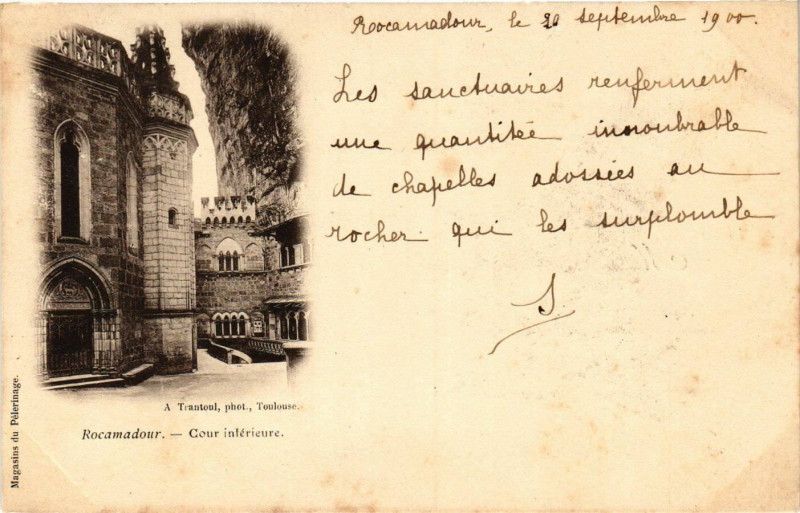 Rocamadour, le 20 septembre 1900.
Les sanctuaires renferment
une quantitée innonbrable
de chapelles adossées au
rocher qui les surplomble
S.
A Trantoul, phot., Toulouse.
Rocamadour. — Cour intérieure.
Magasins du Pèlerinage.